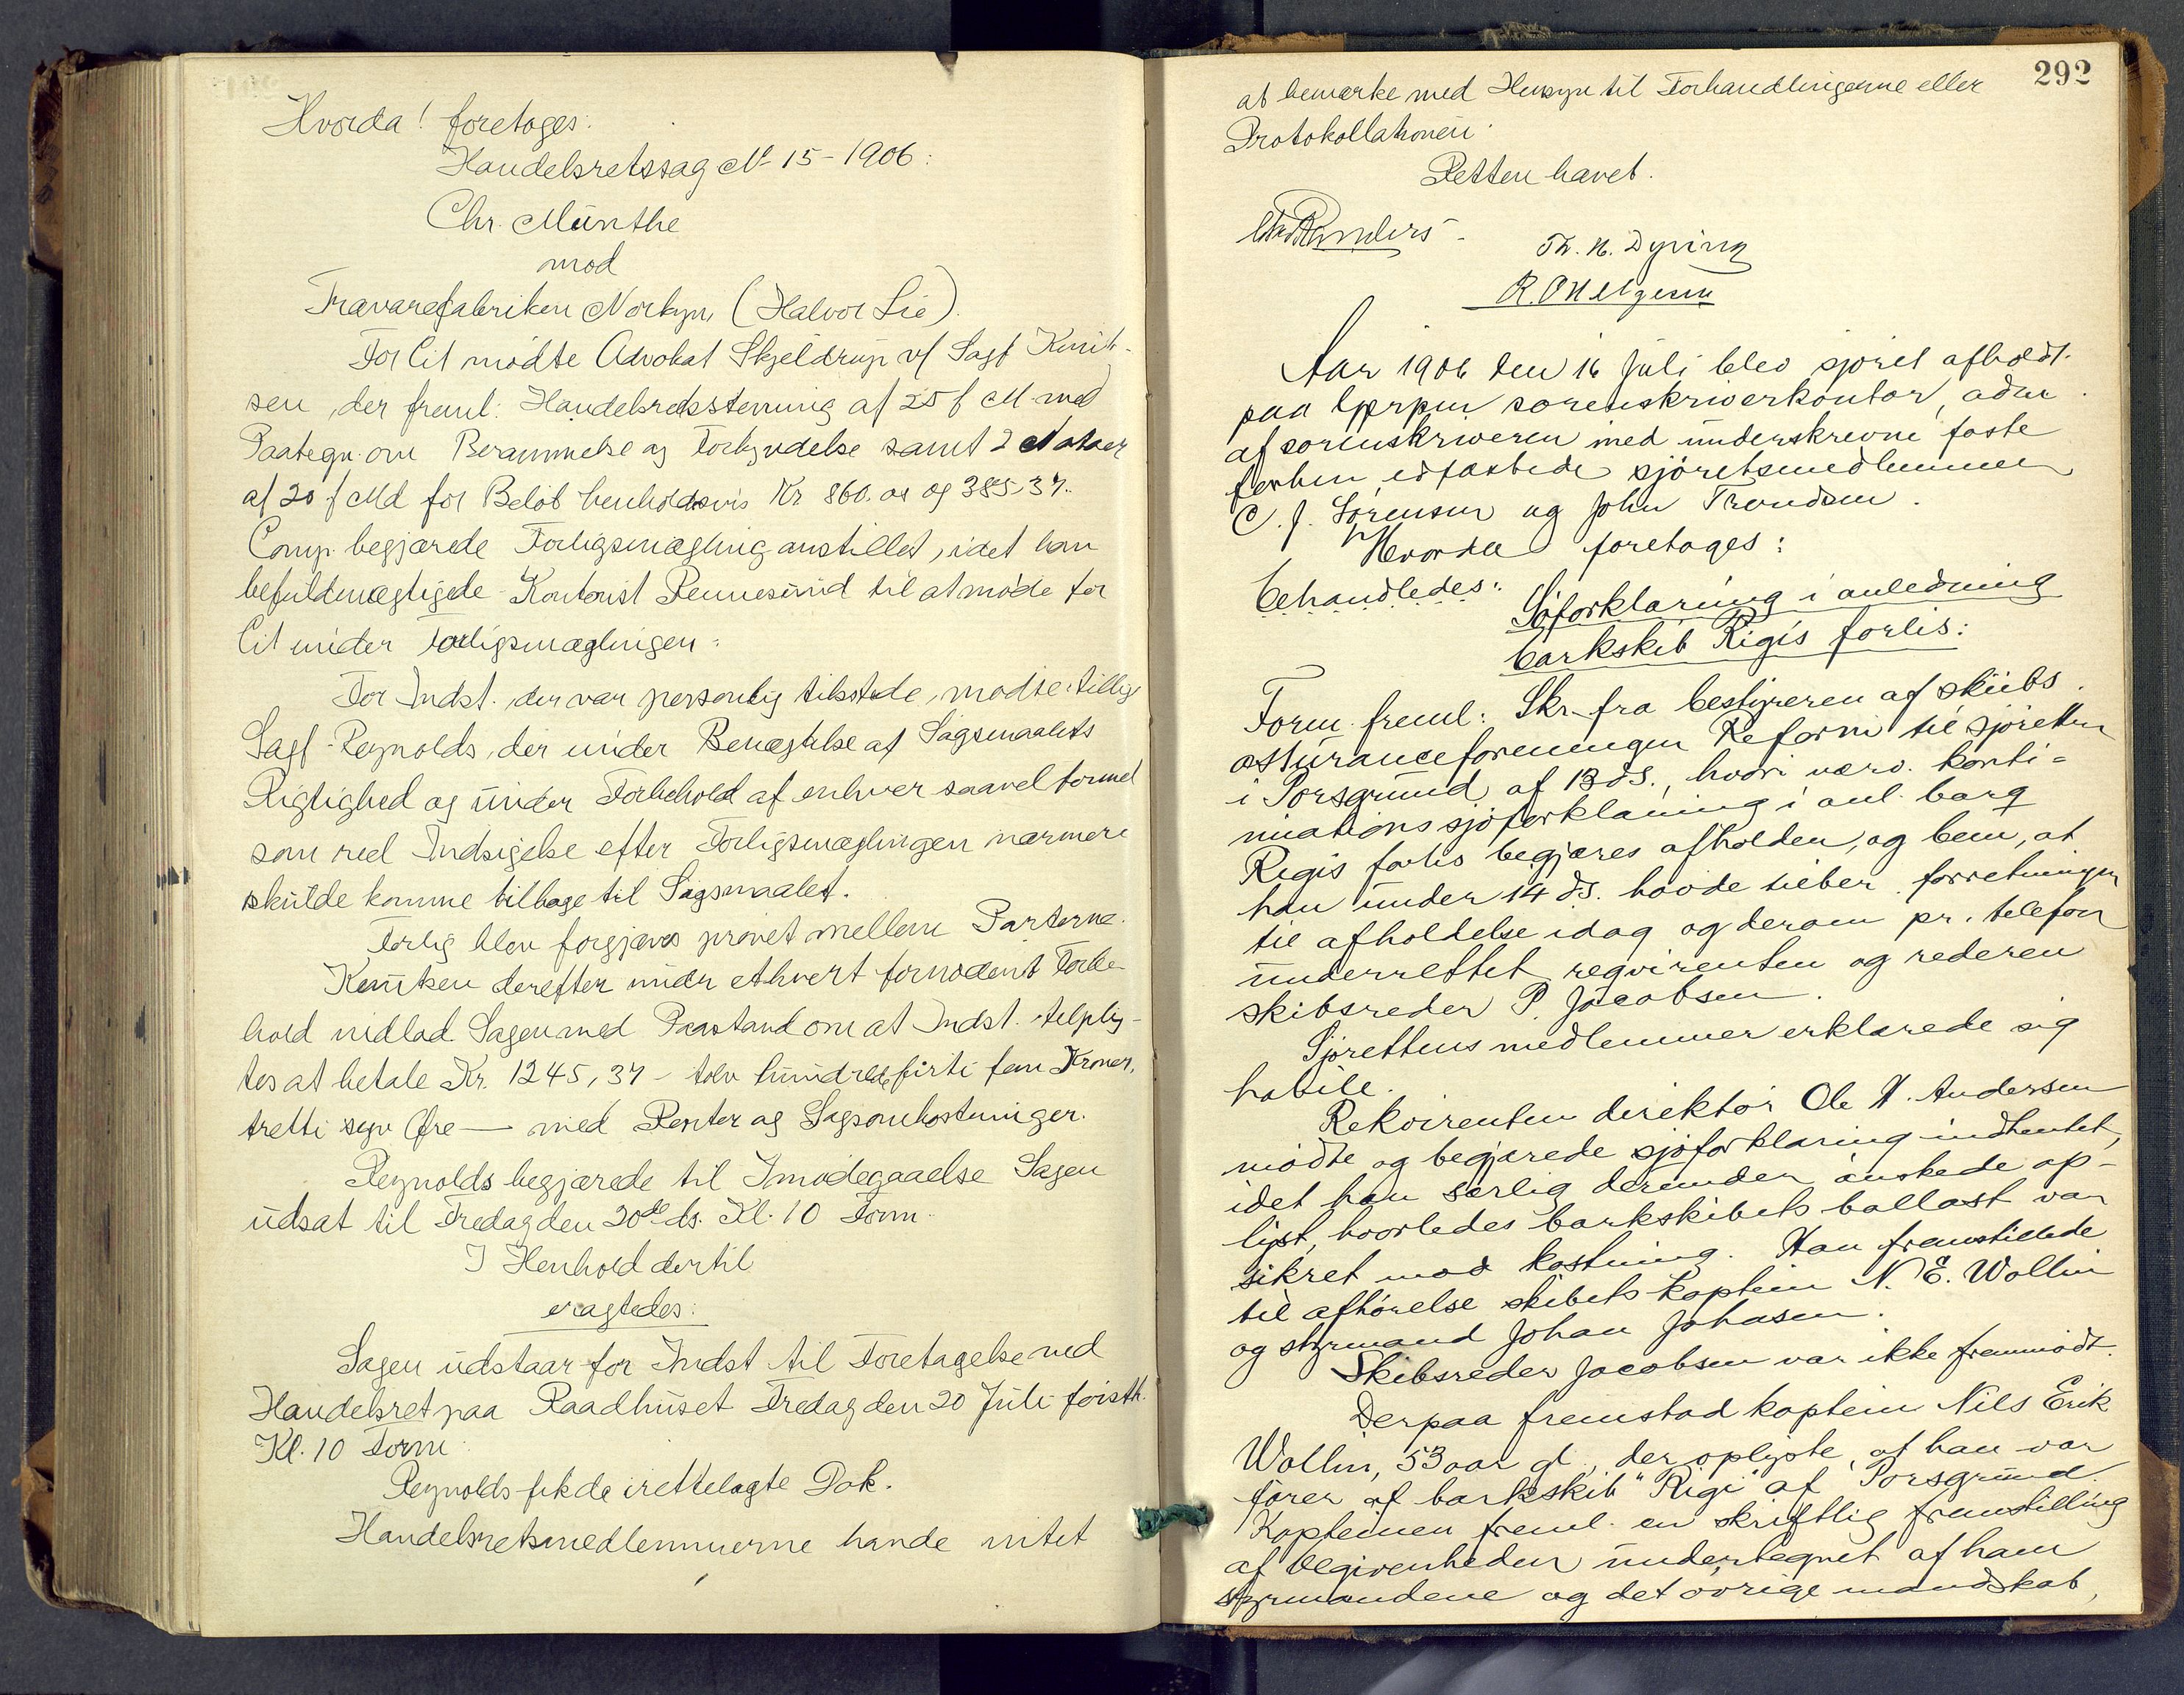 Hvorda! foretoges:
Handelsretssag No 15 - 1906:
Chr. Münthe
mod
Trævarefabriken Norkyn, (Halvor Lie).
For Cit mødte Advokat Skjeldrup v/ Sagf Knüt-
sen, der freml. Handelsretsstevning af 25 f M. med
Paategn. om Berammelse og Forkyndelse samt 2 Notaer
af 20 f Md for Beløb henholdsvis Kr 860.00 og 385,37.
Comp. begjærede Forligsmægling anstillet, idet han
befuldmægtigede Kontorist Rennesund til at møde for
Cit under Forligsmæglingen:
For Indst. der var personlig tilstede, mødte tillige
Sagf. Reynolds, der under Benægtelse af Søgsmaalets
Rigtighed og under Forbehold af enhver saavel formel
som reel Indsigelse efter Forligsmæglingen nærmere
skulde komme tilbage til Søgsmaalet.
Forlig blev forgjæves prøvet mellem Parterne.
Knütsen derefter under ethvert fornødent Forbe-
hold indlod Sagen med Paastand om at Indst. tilplig-
tes at betale Kr. 1245,37 - tolv hundrede firti fem Kroner,
tretti syv Øre — med Renter og Sagsomkostninger.
Reynolds begjærede til Imødegaaelse Sagen
udsat til Fredag den 20de ds. Kl. 10 Form.
I Henhold dertil
eragtedes:
Sagen udstaar for Indst til Foretagelse ved
Handelsret paa Raadhuset Fredag den 20 Juli førstk.
Kl. 10 Form.
Reynolds fik de irettelagte Dok.
Handelsretsmedlemmerne havde intet
292
at bemærke med Hensyn til Forhandlingerne eller
Protokollationen.
Retten hævet.
Th. N. Dyring
Aar 1906 den 16 Juli blev sjøret afholdt
paa Gjerpen sorenskriverkontor, adm.
af sorenskriveren med underskrevne faste
forhen edfæstede sjøretsmedlemmer
C. J. Sørensen og John Trondsen.
Hvorda foretoges:
behandledes: Søforklaring i anledning
barkskib Rigis forlis:
Form. freml: Skr. fra bestyreren af skibs
assuranceforeningen Reform til sjøretten
i Porsgrund af 13 ds., hvori værv. konti=
nuationssjøforklaring i anl. barq
Regis forlis begjæres afholden, og bem, at
han under 14 ds. havde berber. forretningen
til afholdelse idag og derom pr. telefon
underrettet reqvirenten og rederen
skibsreder P. Jacobsen.
Sjørettens medlemmer erklærede sig
habile.
Rekvirenten direktør Ole H. Andersen
mødte og begjærede sjøforklaring indhentet,
idet han særlig derunder ønskede op-
lyst, hvorledes barkskibets ballast var
sikret mod kastning. Han fremstillede
til afhørelse skibets kaptein N. E. Wollin
og styrmand Johan Johasen.
Skibsreder Jacobsen var ikke fremmødt.
Derpaa fremstod kaptein Nils Erik
Wollin, 53 aar gl., der oplyste, at han var
fører af barkskib "Rigi" af Porsgrund.
Kapteinen freml. en skriftlig fremstilling
af begivenheden undertegnet af ham
styrmandene og det øvrige mandskab,